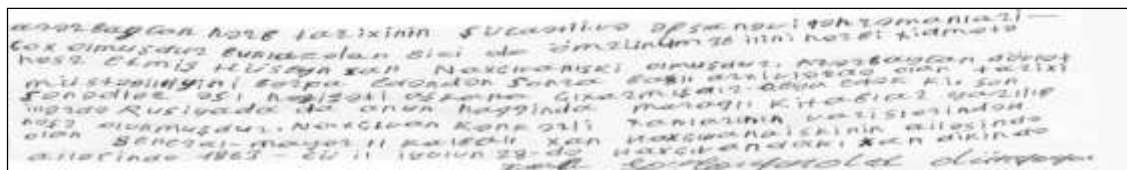 azərbaycan hərb tarixinin şücaətli və əfsanəvi qəhrəmanları
çox olmuşdur bunlardan biri də ömrünün 38 ilini hərbi xidmətə
həsr etmiş Hüseyn xan Naxçıvanski olmuşdur. Azərbaycan dövlət
müstəqilliyini bərpa edəndən sonra bağlı arxivlərdə olan tarixi
sənədlər əsl həqiqəti aşkara çıxarmışdır. ki, son
Rusiyada da onun haqqında maraqlı kitablar yazılıb
nəşr olunmuşdur. Naxçıvan Kəngərli xanlarının varislərindən
olan General-mayor II Kalbalı xan Naxçıvanskinin ailəsində
ailəsində 1863-cü il iyulun 28-də Naxçıvandakı xan dikində